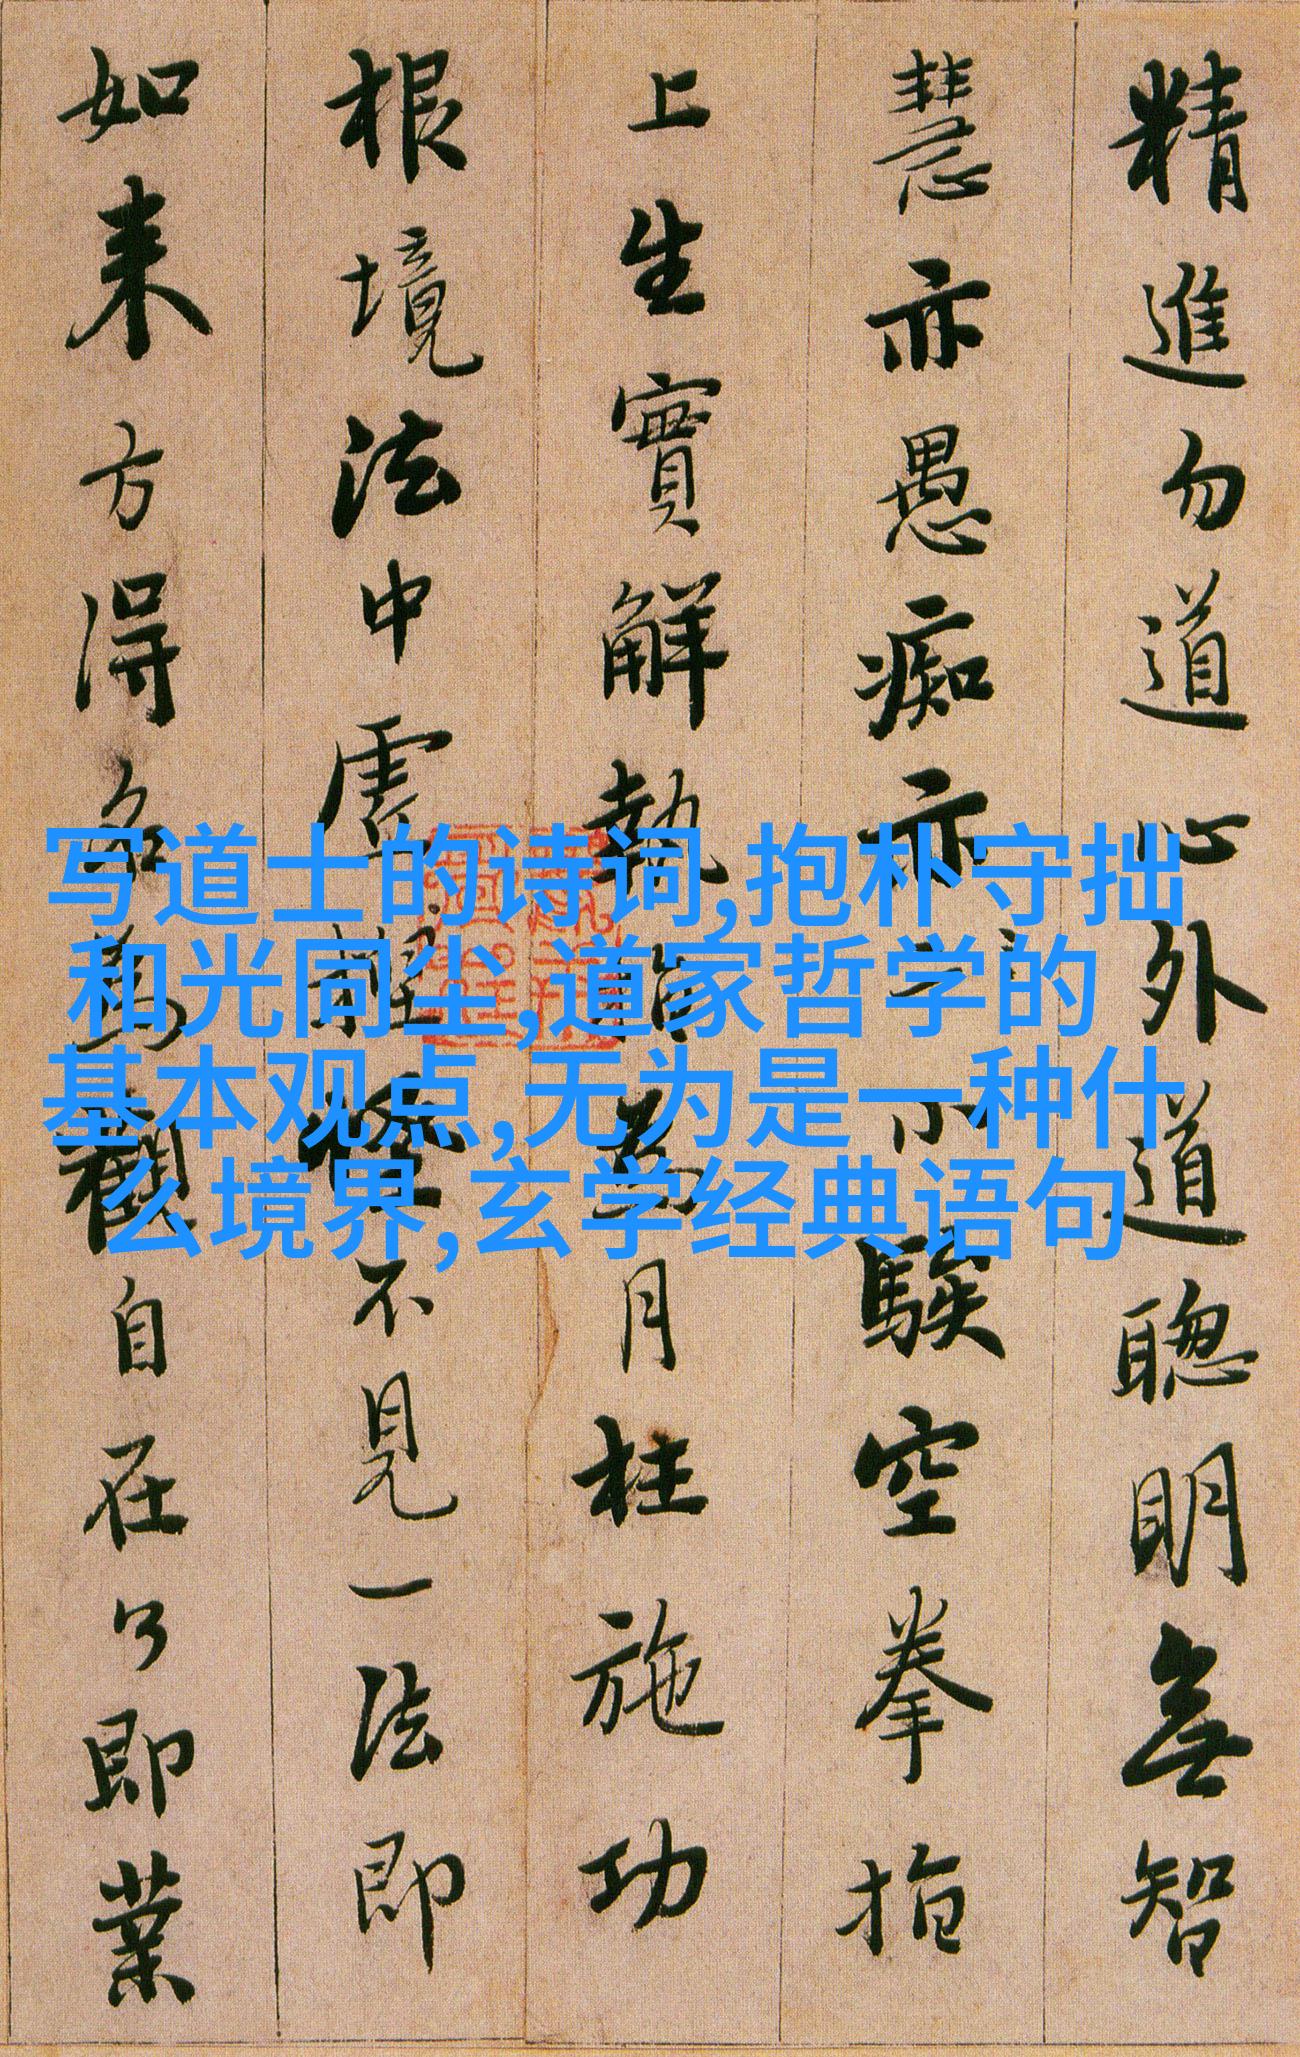 精進勿道心外道聰明無智
慧亦愚痴亦小騃空拳指
上生實解執指為月枉施功
根境法中虛捏怪不見一法即
如来方得名為觀自在了即業
写道士的诗词,抱朴守拙
和光同尘,道家哲学的
基本观点,无为是一种什
么境界,玄学经典语句